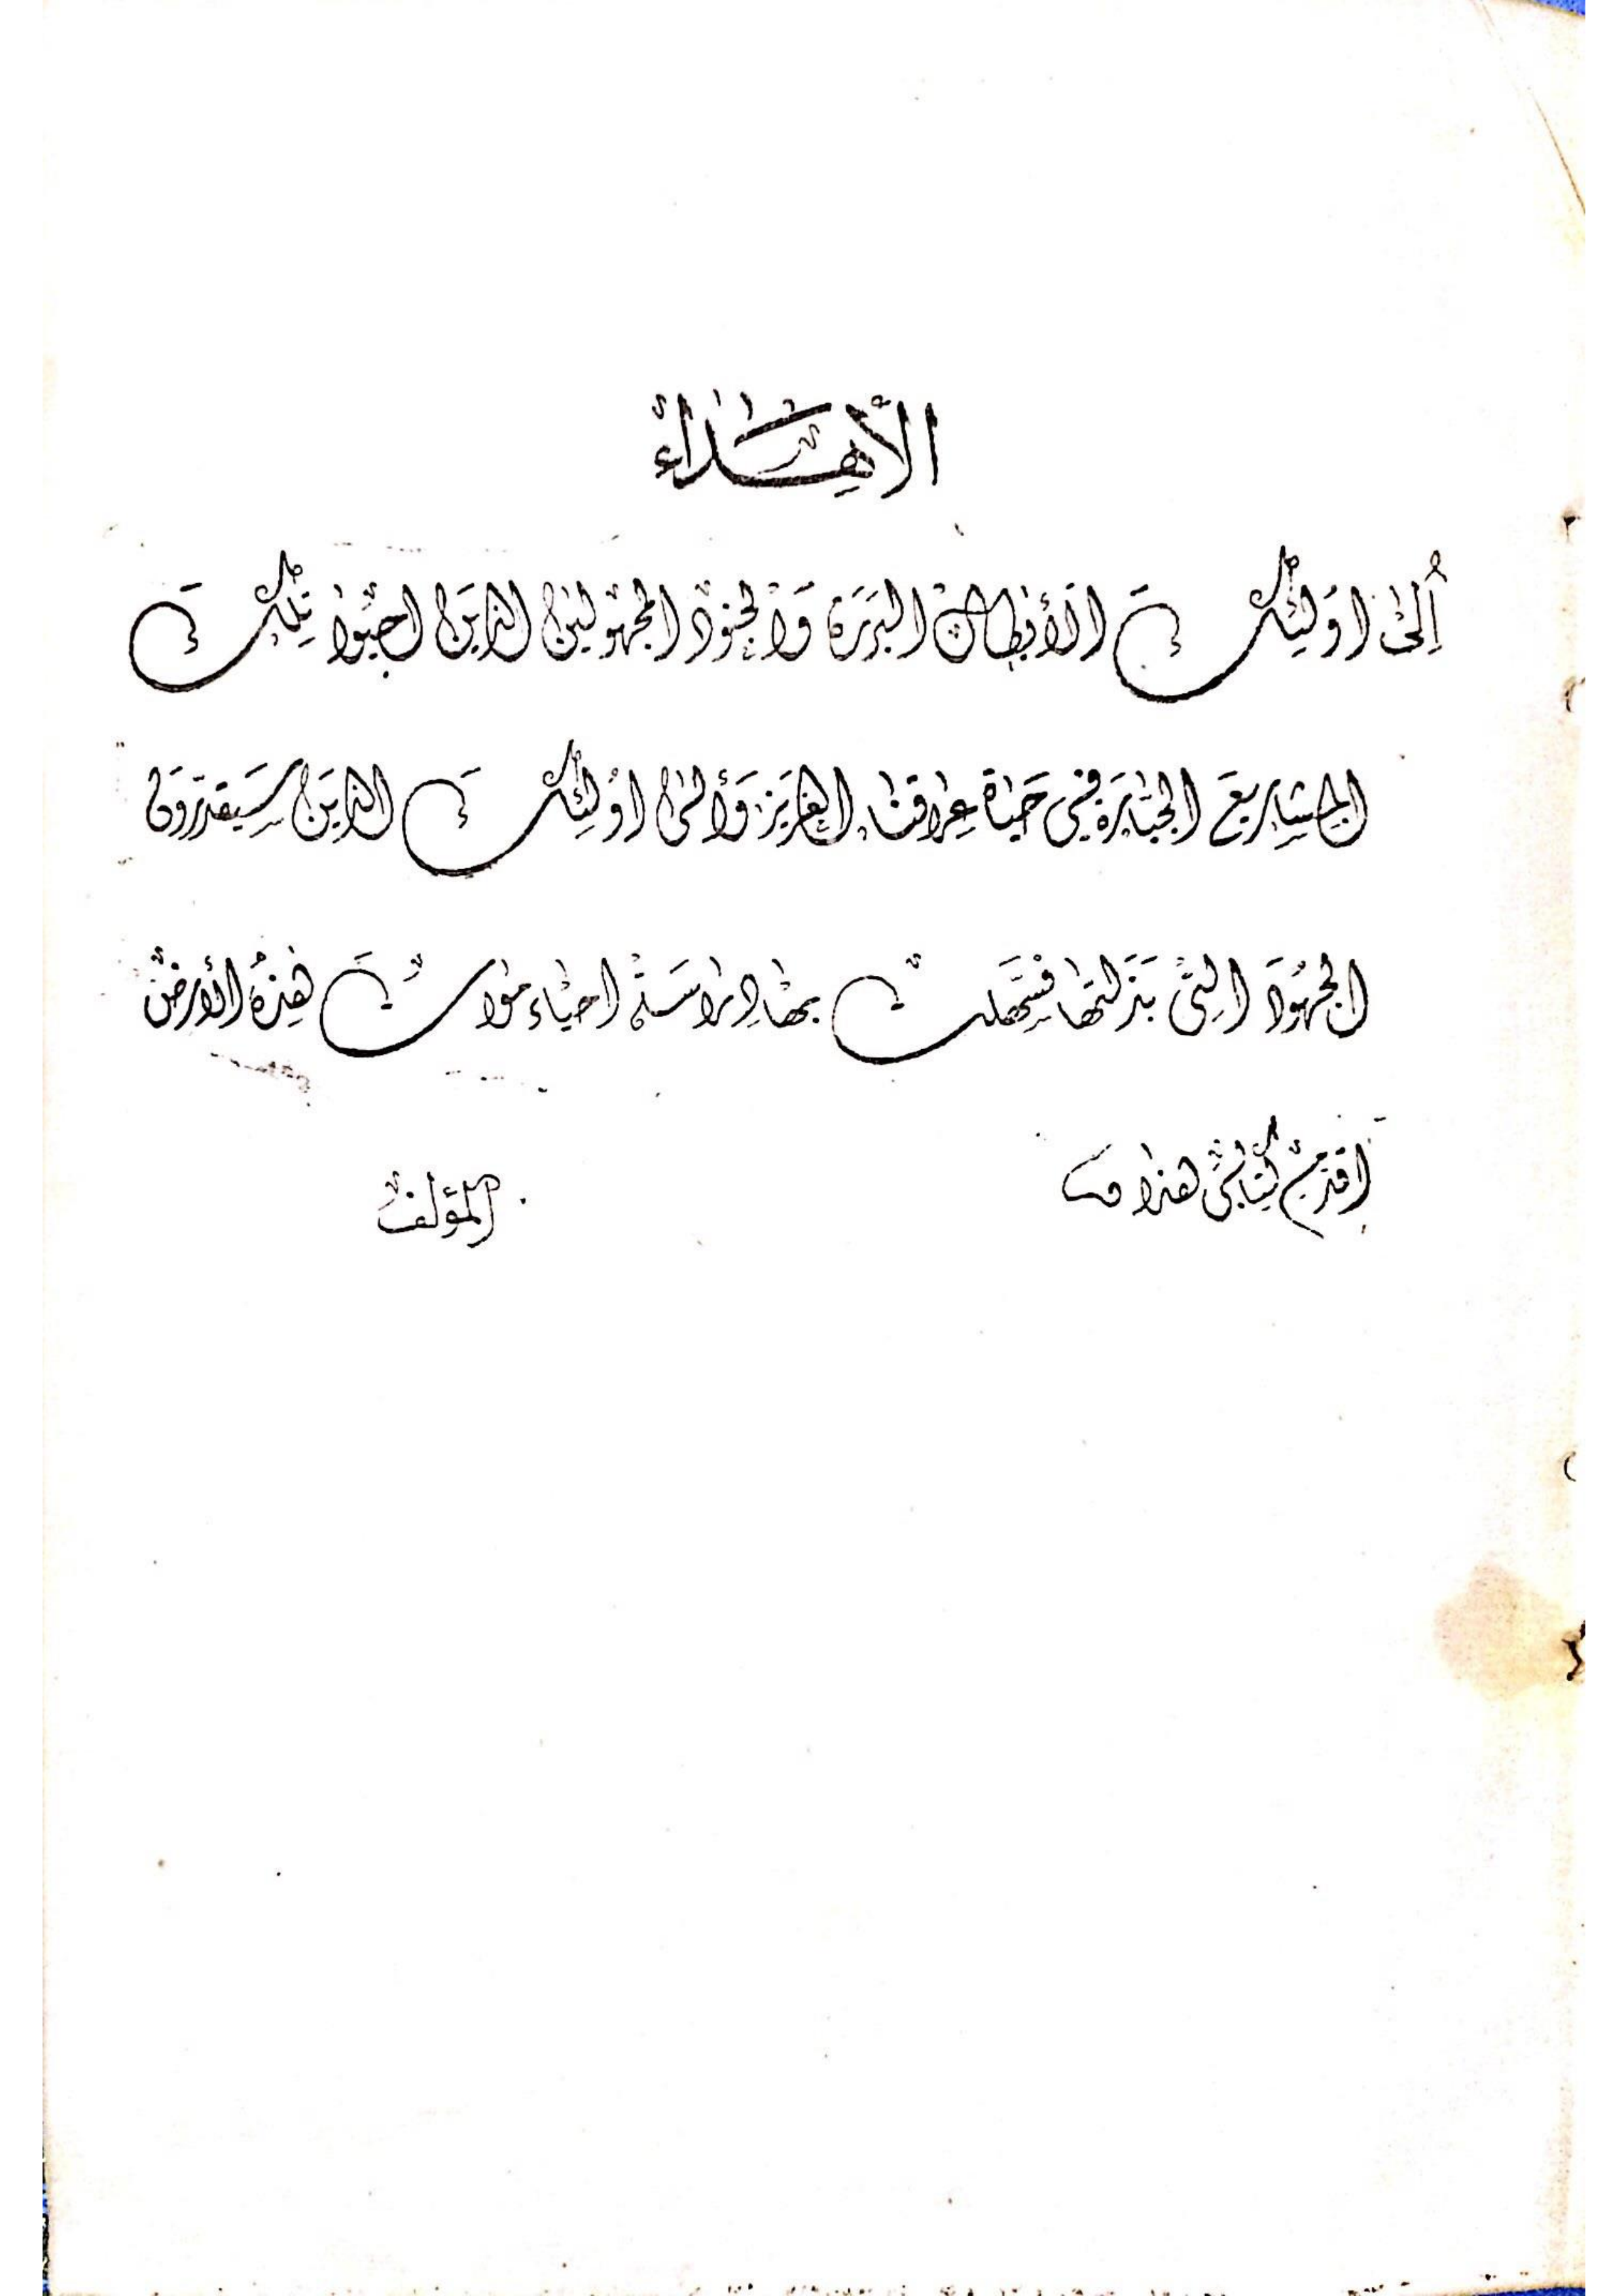 الأهداء
إلى اولئك الأبطال البررة والجنود المجهولين الذين احيوا تلك
المشاريع الجبارة في حياة عراقنا العزيز وألى اولئك الذين سيقدرون
الجهود التي بذلتها فسهلت بها دراسة احياء موات هذه الأرض
اقدم كتابي هذا
المؤلف